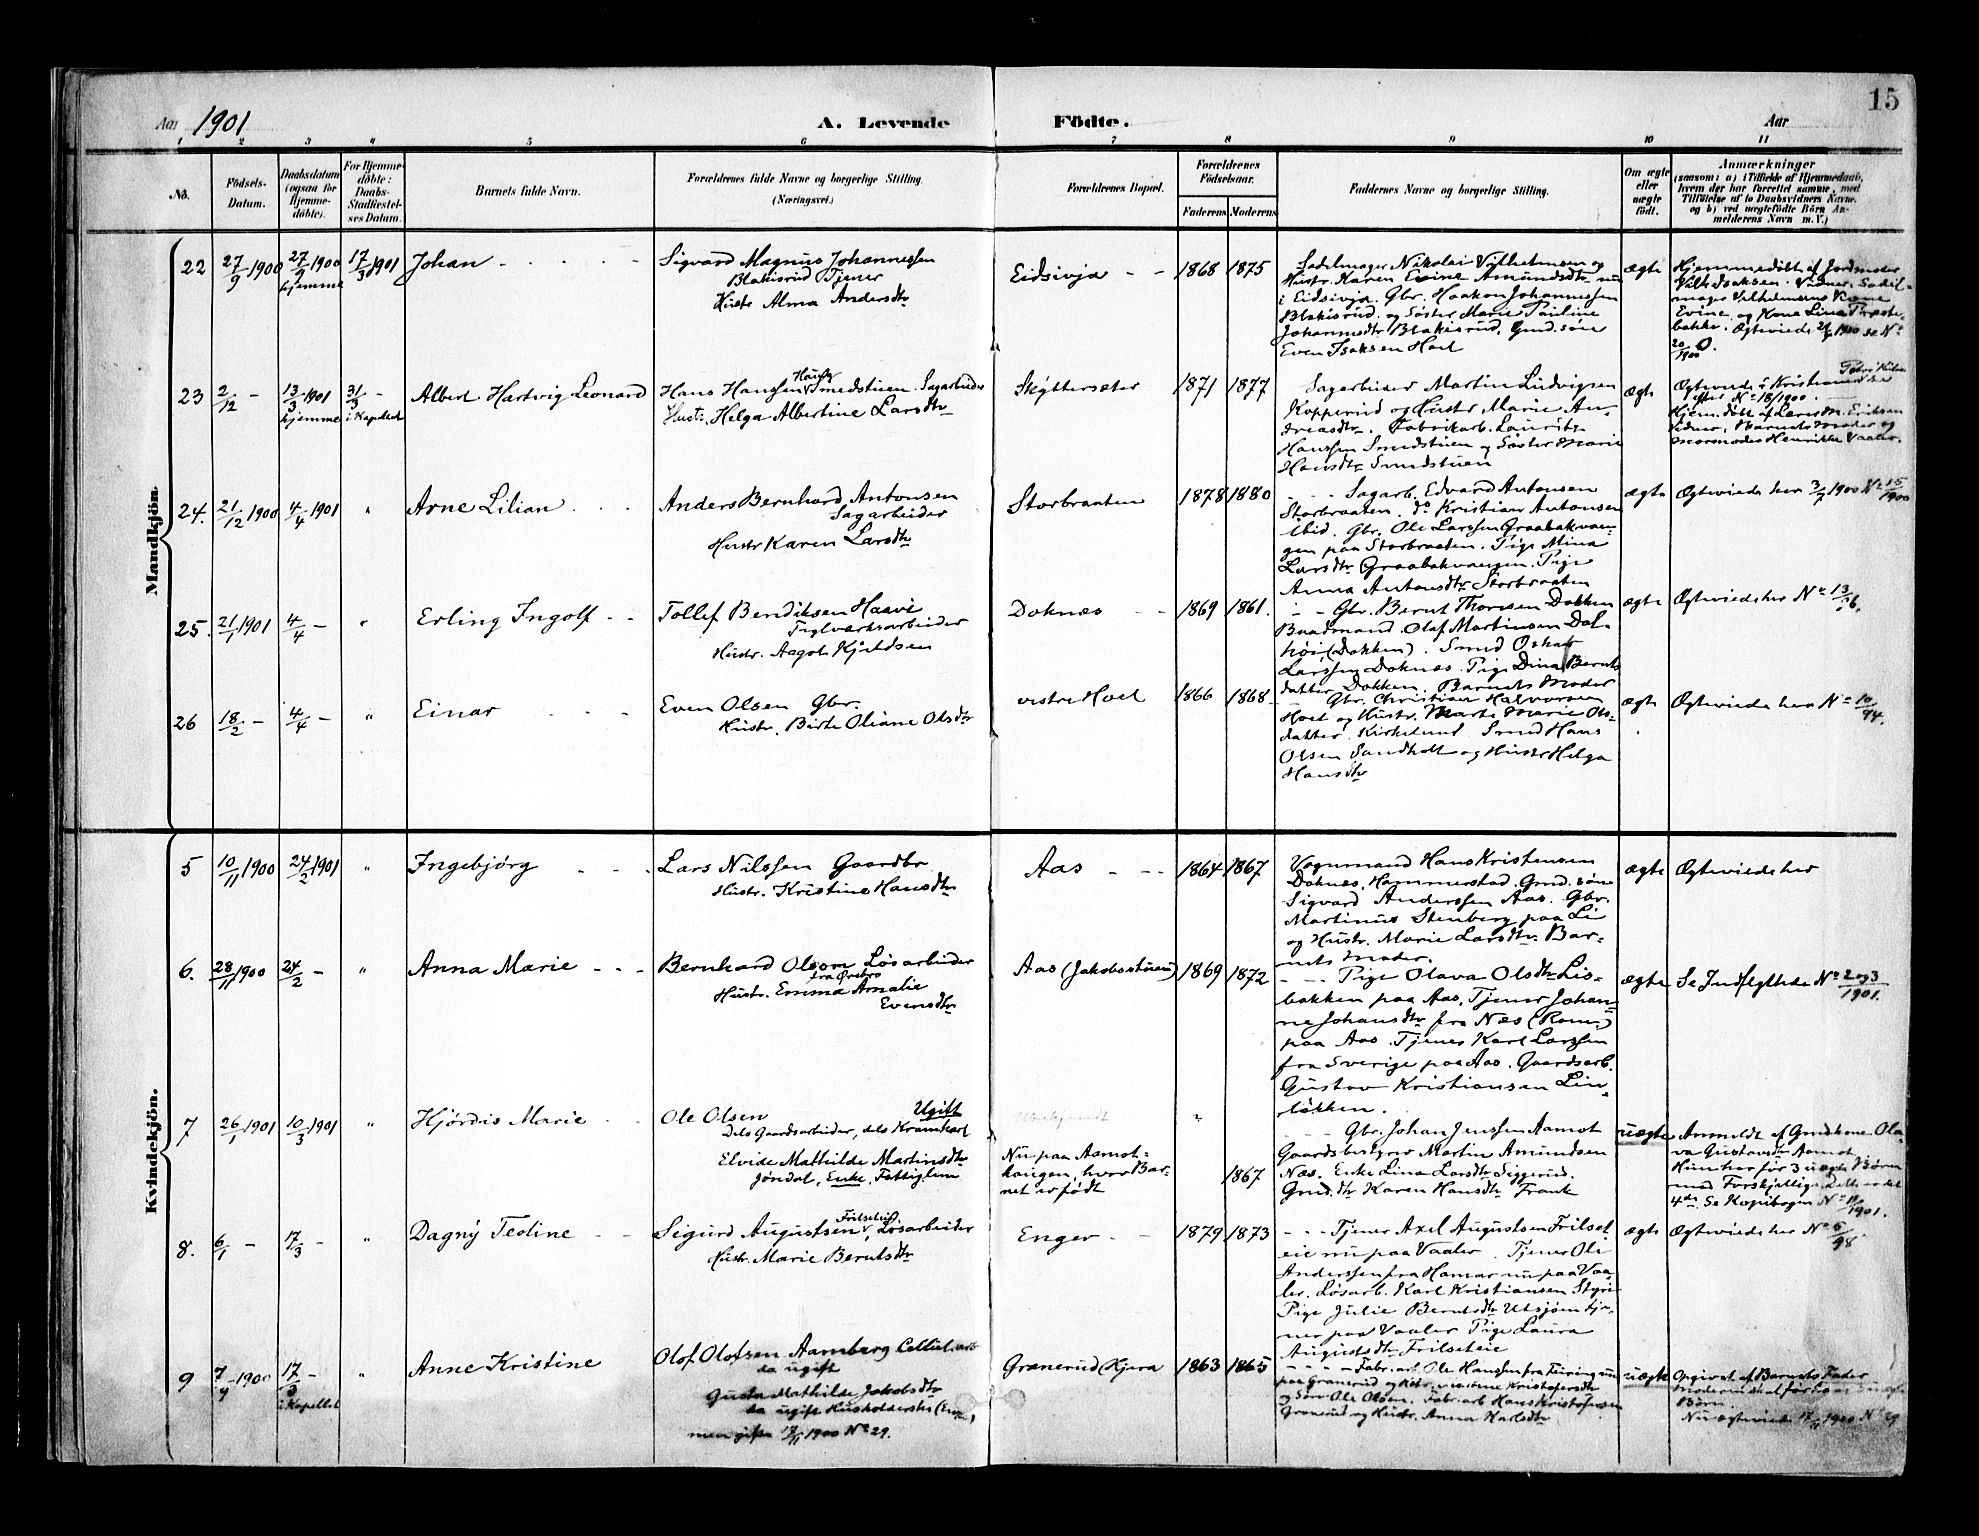 15
Aar 1901
A. Levende Födte.
Aar
1 2 3 " 5 6 7 8 9 10 11
Nō.
Födsels-
Datum.
Daabsdatum
(ogsaa for
Hjemme-
döbte).
For Hjemme-
döbte:
Daabs-
Stadfestel-
ses Datum.
Barnets fulde Navn.
Forældrenes fulde Navne og borgerlige Stilling.
(Næringsvei.)
Forældrenes Bopæl.
Forældrenes
Födselsaar.
Faderens Moderens
Faddernes Navne og borgerlige Stilling.
Om ægte
eller
uægte
födt.
Anmærkninger
(saasom: a) i Tilfælde af Hjemmedaab,
hvem der har forrettet samme, med
Tilföielse af to Daabsvidners Navne.
og b) ved uægtefödte Börn An-
melderens Navn m. V.)
Mandkjön.
22
27/9 1900
27/9 1900
hjemme
17/3 1901
Johan
Sigvard Magnus Johannessen
Blakisrud Tjener
Hustr Alma Andersdtr
Eidsivja
1868 1875
Sadelmager Nikolai Vilhelmsen og
Hustr. Karen Evine Amundsdtr nu
i Eidsivja. Gbr. Haakon Johannessen
Blakisrud. og Söster Marie Pauline
Johannesdtr Blakisrud. Gmd. sön
Even Isaksen Hoel
ægte
Hjemmedöbt af Jordmoder
Vilh. Isaksen. Vidner: Sadel-
mager Vilhelmsens Kone
Evine og Kone Lina Præste-
bakke. Ægteviede 21/ 1900 se No
20/1900
23
2/12 -
13/3 1901
hjemme
31/3 -
i Kapellet
Albert Hartvig Leonard
Haug
Hans Hanssen Smedstuen. Sagarbeider
Hustr: Helga Albertine Larsdtr
Skyttersæter
1871 1877
Sagarbeider Martin Ludvigsen
Kopperud og Hustr Marie An-
dreasdtr. Fabrikarb. Lauritz
Hanssen Smedstuen og Söster Marie
Hansdtr Smedstuen
ægte
Ægteviede i Kristiania
efter No 18/1900.
Hjem.döbt af Lars M. Eriksen
Vidner, Barnets Moder og
Mormoder Henrikke Vaaler.
24.
21/12 1900
4/4 1901
"
Arne Lilian
Anders Bernhard Antonsen
Sagarbeider
Hustr Karen Larsdtr
Storbraaten
1878 1880
Sagarb. Edvard Antonsen
Storbraaten. do Kristian Antonsen
ibid. Gbr. Ole Larssen Graabakvæn-
gen paa Storbraaten. Pige Mina
Larsdtr Graabakvangen. Pige
Anna Antonsdtr Storbraaten
ægte
Ægteviede her 3/7 1900 No 15/1900
25.
21/1 1901
4/4 -
"
Erling Ingolf
Tollef Bendiksen Haave
Teglværksarbeider
Hustr. Aagot Kjeldsen
Doknæs
1869 1861.
Gbr. Bernt Thoresen Dokken
Baadmand. Olaf Martinsen Dal-
höi (Dokken). Smed Oskar
Larssen Doknæs. Pige Dina Bernts
datter Dokken. Barnets Moder
ægte
Ægteviede her No 13/96.
26
18/2 -
4/4 -
"
Einar
Even Olsen Gbr.
Hustr. Birte Oliane Olsdtr
vestre Hoel
1866 1868
Gbr. Christian Halvorsen
Hoel og Hustr. Marte Marie Ols-
datter. Kirkelund Smed Hans
Olsen Sandholt og Hustr Helga
Hansdtr
ægte
Ægteviede her No 10/94.
Kvindekjön.
5
10/11 1900
24/2 1901
"
Ingebjörg
Lars Nilssen Gaardbr
Hustr. Kristine Hansdtr
Aas
1864 1867
Vognmand Hans Kristensen
Doknæs, Hammerstad. Gmd. sön
Sigvard Anderssen Aas. Gbr.
Martinus Stenberg paa Li
og Hustr. Marie Larsdtr Bar-
nets Moder.
ægte
Ægteviede her
6.
28/11 1900
24/2 -
"
Anna Marie
Bernhard Olsson Lösarbeider
fra Örebro
Hustr. Emma Amalie
Evensdtr
Aas (Jakobsstuen)
1869 1872
Pige Olava Olsdtr Lis-
bakken paa Aas. Tjener Johan-
ne Johansdtr fra Næs (Rom.)
paa Aas. Tjener Karl Larssen
fra Sverige paa Aas. Gaardsarb.
Gustav Kristiansen Lin-
lökken.
ægte
Se Indflyttede No 2 og 3
1901.
7
26/1 1901
10/3 1901
"
Hjördis Marie
Ole Olsen Ugift
Dels Gaardsarbeider, dels Kramkarl
Elvide Mathilde Martinsdtr
Jöndal, Enke, Fattiglem
Ubekjendt
Nu paa Aamot-
haugen, hvor Bar-
net er födt
"
1867
Gbr. Johan Jenssen Aamot
Gaardsbestyrer Martin Amundsen
Næs. Enke Lina Larsdtr Siggerud.
Gmd. dtr Karen Hansdtr Frank
uægte
Anmeldt af Gmdkone Ola-
va Gustavsdtr Aamot
Hun har för 3 uægte Börn
med Forskjellige, dette er det
4de. Se Kopibogen No 11/1901.
8.
6/1 -
17/3 -
"
Dagny Teoline
Frilseteie
Sigurd Augustsen, Lösarbeider
Hustr Marie Berntsdtr
Enger
1879 1873
Tjener Axel Augustsen Frilset-
eie nu paa Vaaler. Tjener Ole
Anderssen fra Hamar nu paa Vaa-
ler. Lösarb. Karl Kristiansen Styri
Pige Julie Berntsdtr Utsjöen tje-
ner paa Vaaler Pige Laura
Augustsdtr Frilseteie
ægte
Ægteviede her No 5/98.
9
7/9 1900
17/3 -
i Kapellet
"
Anne Kristine
Olof Olofsen Aamberg Cellul. arb
da ugift
Gusta Mathilde Jakobsdtr
da ugift Husholderske
men gifte 17/11 1900 No 29.
Granerud (Hjera
1863 1865
Fabr. arb Ole Hanssen fra Feiring nu
paa Granerud og Kristofersdtr
og Sön Ole Olsen. Fabr. arb Hans Kristofersen
Granerud og Hustr. Anna Karlsdtr
uægte
Opgivet af Barnets Fader
Moderen skal för have 3 uægte
Börn.
Nu ægteviede 17/11 1900 No 29